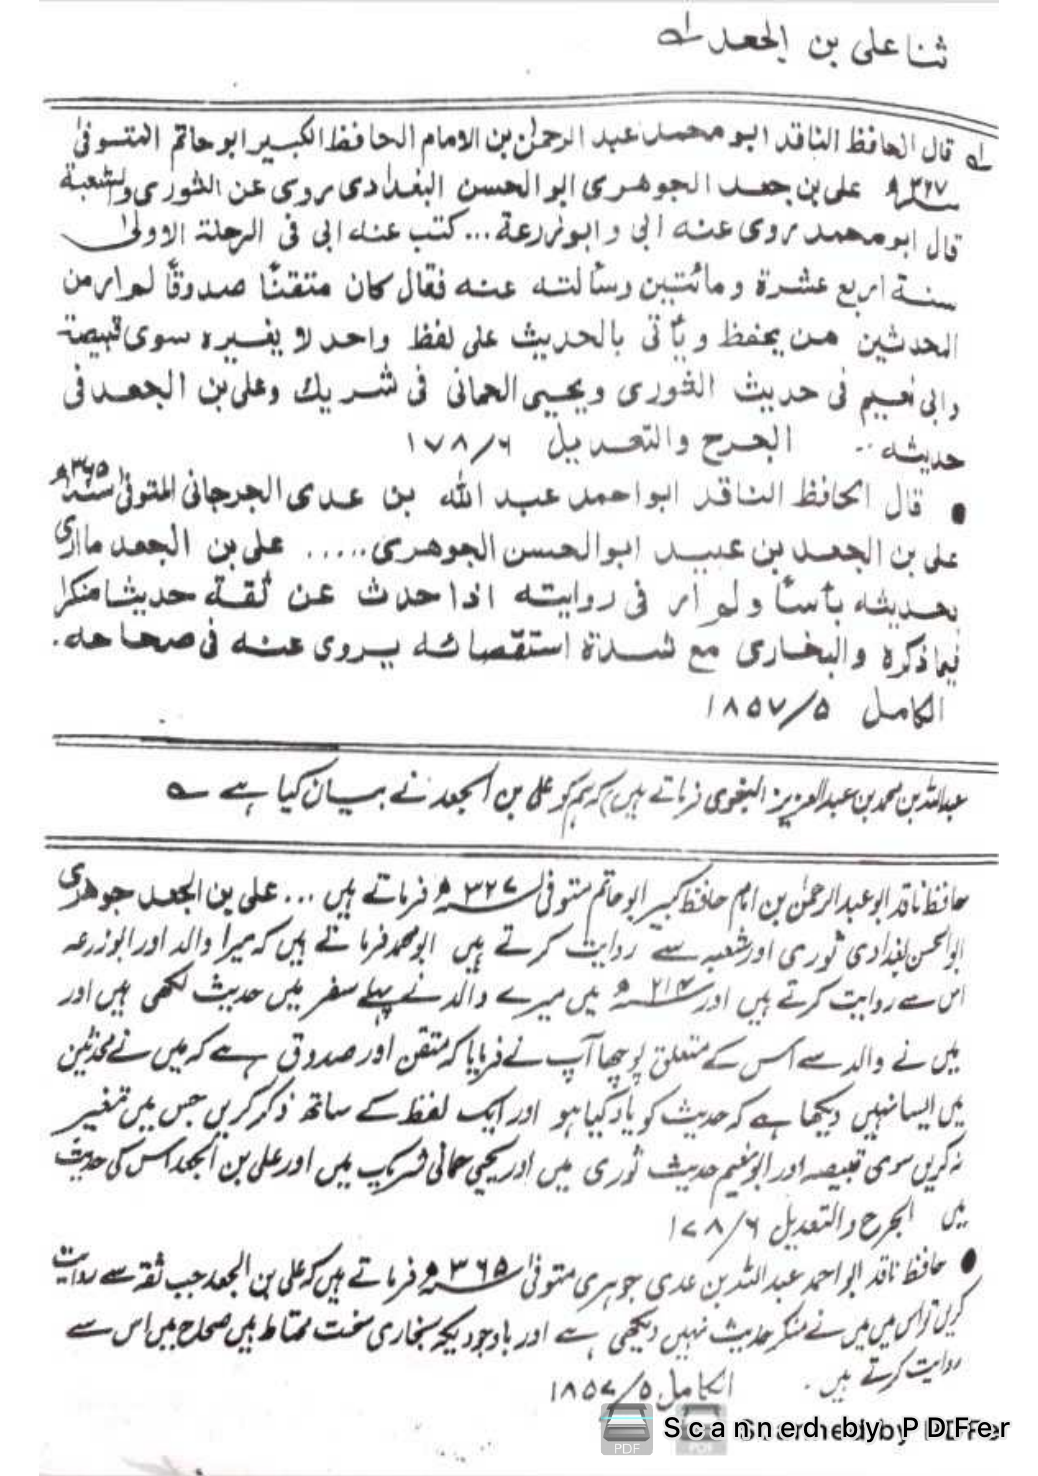 ثنا علی بن الجعد لہ
لہ قال الحافظ الناقد ابو محمد عبد الرحمٰن بن الامام الحافظ الکبیر ابو حاتم المتوفیٰ
سنہ ۳۲۷ھ علی بن جعد الجوھری ابو الحسن البغدادی یروی عن الثوری و شعبة
قال ابو محمد یروی عنہ ابی و ابو زرعة ... کتب عنہ ابی فی الرحلة الاولیٰ
سنة اربع عشرة و مأتین وسألتہ عنہ فقال کان متقنًا صدوقًا لم ار من
المحدثین من یحفظ و یأتی بالحدیث علی لفظ واحد لا یغیرہ سوی قبیصة
وابی نعیم فی حدیث الثوری ویحیی الحمانی فی شریك وعلی بن الجعد فی
حدیثہ .. الجرح والتعدیل ۱۷۸/۶
● قال الحافظ الناقد ابو احمد عبد اللہ بن عدی الجرجانی المتوفیٰ سنہ ۳۶۵ھ
علی بن الجعد بن عبید ابو الحسن الجوھری ..... علی بن الجعد ما اری
بحدیثہ بأسًا ولم ار فی روایتہ اذا حدث عن ثقة حدیثا منکرا
فیما ذکرہ والبخاری مع شدة استقصائہ یروی عنہ فی صحاحہ.
الکامل ۱۸۵۷/۵
عبداللہ بن محمد بن عبدالعزیز البغوی فرماتے ہیں کہ ہم کو علی بن الجعد نے بیان کیا ہے لہ
حافظ ناقد ابو عبدالرحمٰن بن امام حافظ کبیر ابو حاتم متوفیٰ سنہ ۳۲۷ھ فرماتے ہیں ... علی بن الجعد جوھری
ابوالحسن بغدادی ثوری اور شعبہ سے روایت کرتے ہیں ابو محمد فرماتے ہیں کہ میرا والد اور ابوزرعہ
اس سے روایت کرتے ہیں اور سنہ ۲۱۴ھ میں میرے والد نے پہلے سفر میں حدیث لکھی ہیں اور
میں نے والد سے اس کے متعلق پوچھا آپ نے فرمایا کہ متقن اور صدوق ہے کہ میں نے محدثین
میں ایسا نہیں دیکھا ہے کہ حدیث کو یاد کیا ہو اور ایک لفظ کے ساتھ ذکر کریں جس میں تغییر
نہ کریں سوی قبیصہ اور ابونعیم حدیث ثوری میں اور یحیی حمانی شریک میں اور علی بن الجعد اس کی حدیث
میں الجرح والتعدیل ۱۷۸/۶
● حافظ ناقد ابو احمد عبداللہ بن عدی جوہری متوفیٰ سنہ ۳۶۵ھ فرماتے ہیں کہ علی بن الجعد جب ثقہ سے روایت
کریں تو اس میں میں نے منکر حدیث نہیں دیکھی ہے اور باوجودیکہ بخاری سخت محتاط ہیں صحاح میں اس سے
روایت کرتے ہیں. الکامل ۱۸۵۷/۵
Scanned by PDFer